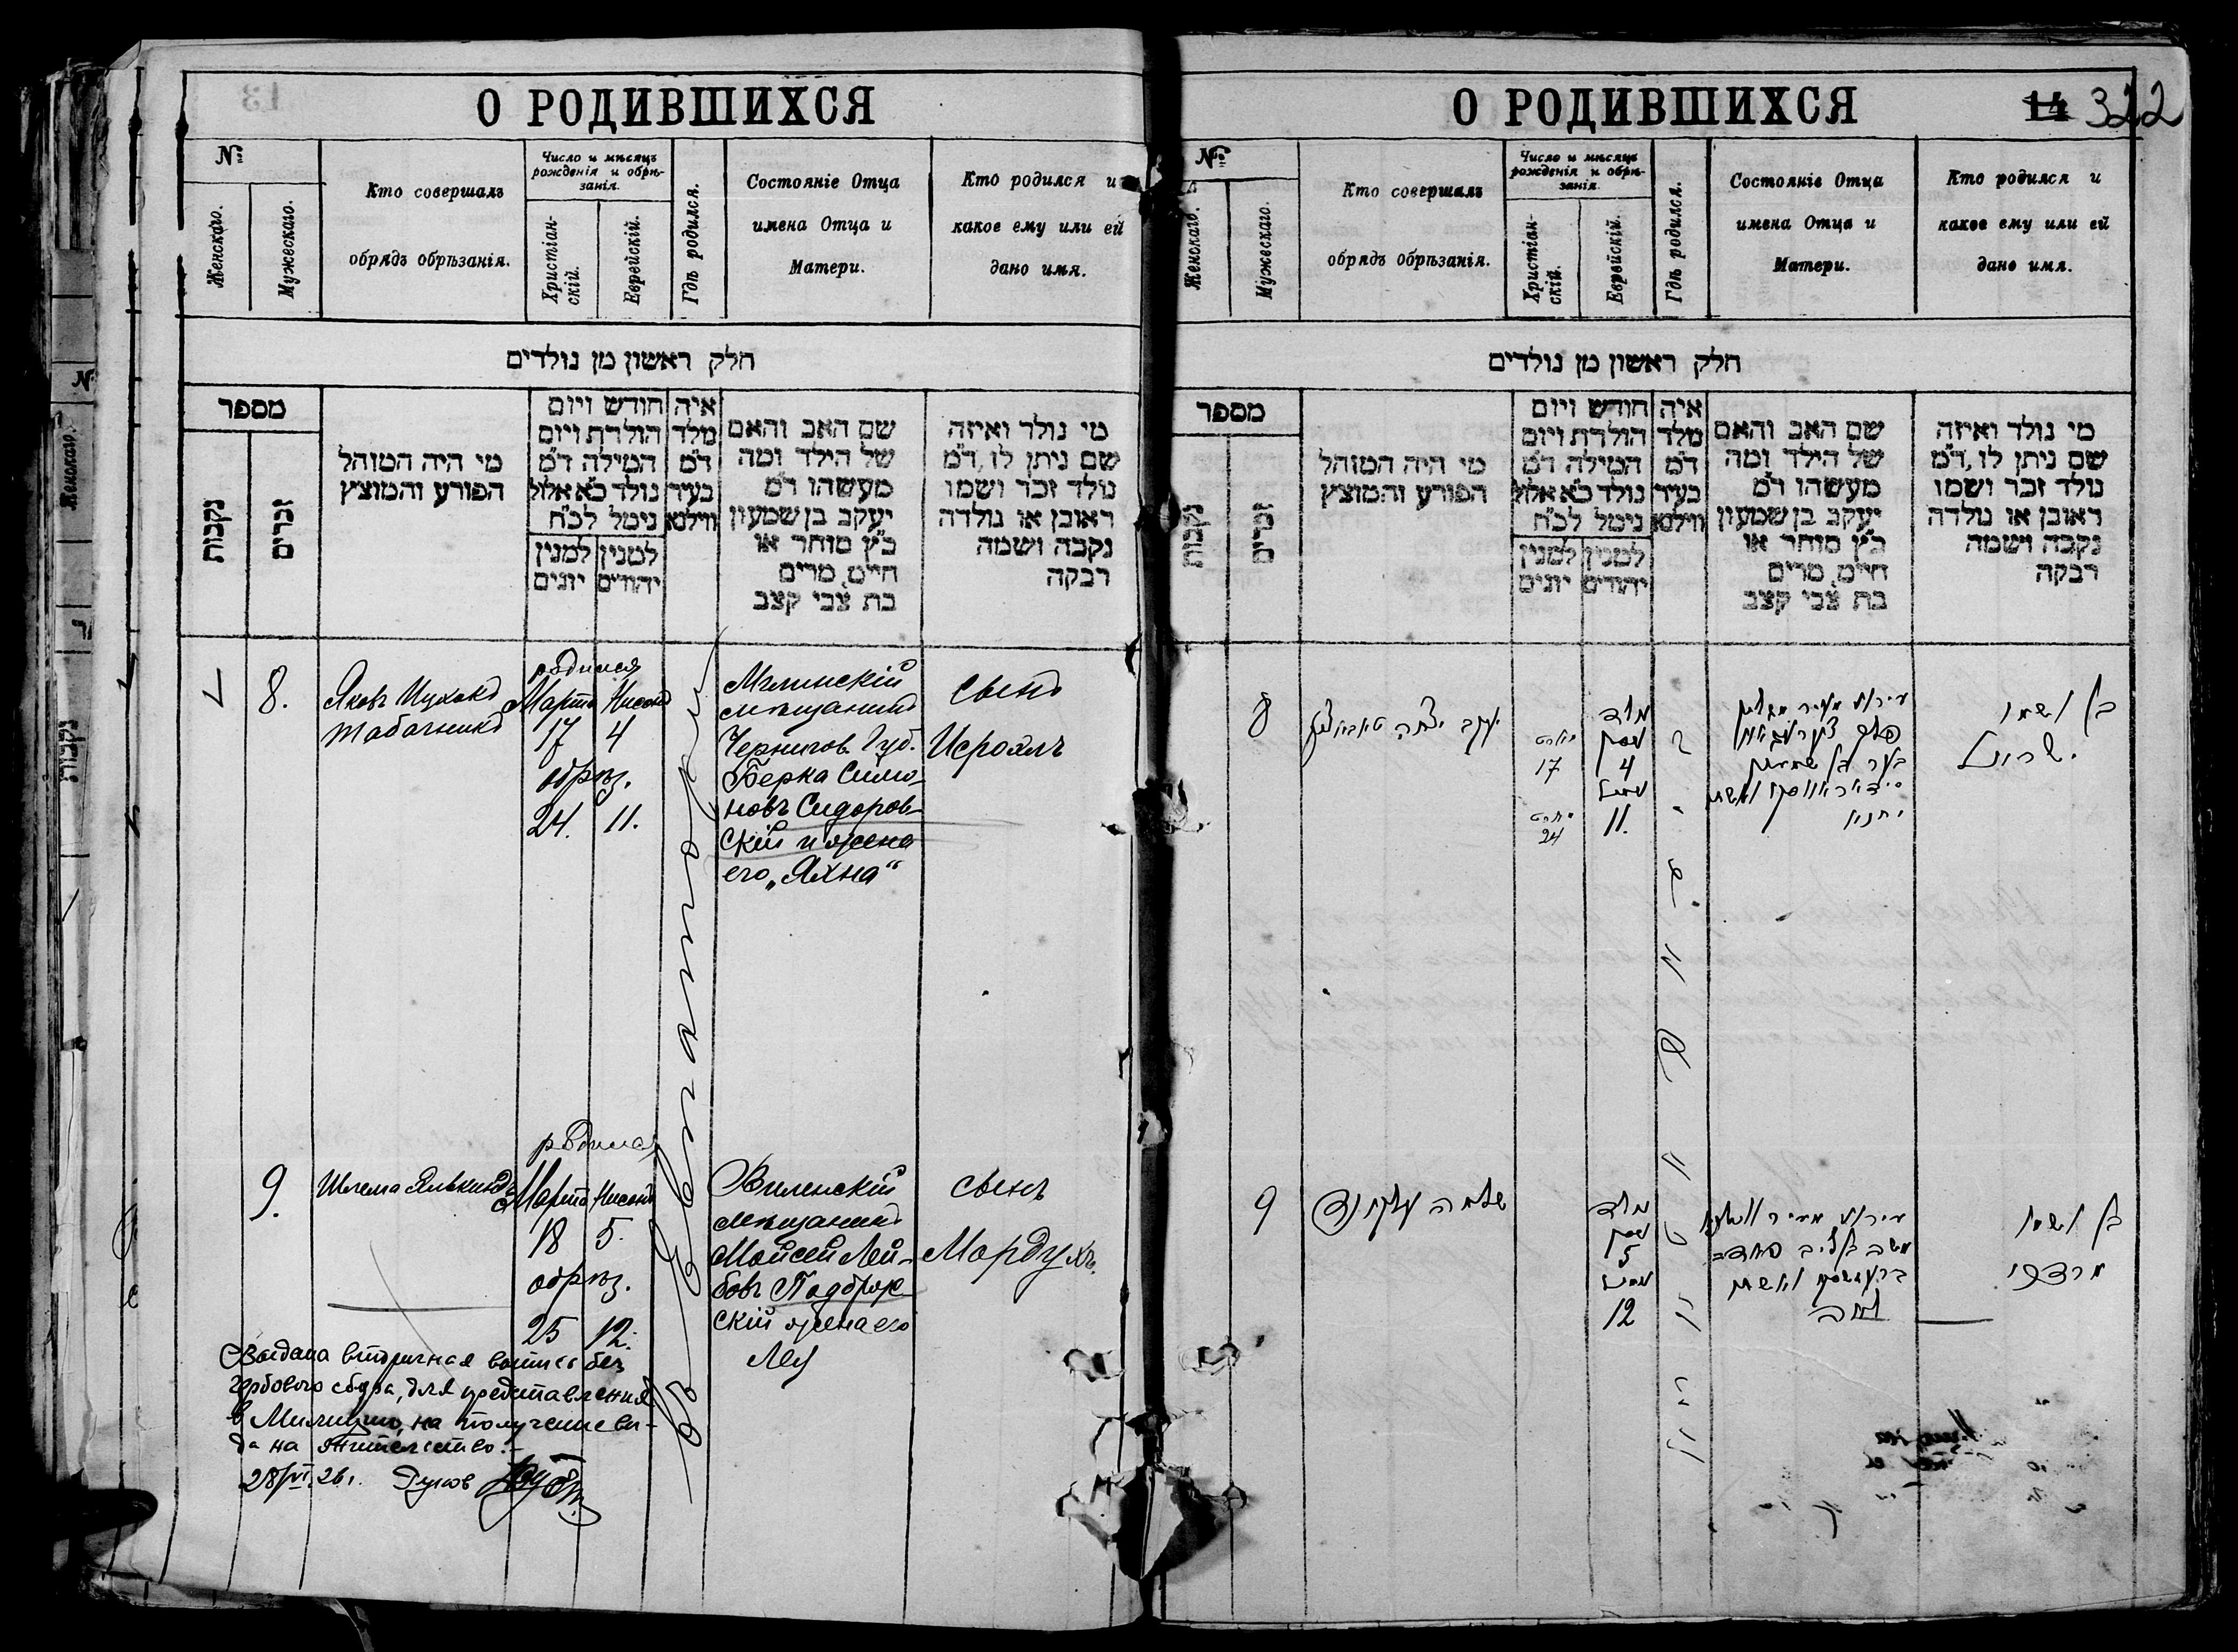 О РОДИВШИХСЯ
№
Женскаго.
Мужескаго.
Кто совершалъ
обрядъ обрѣзанія.
Число и мѣсяцъ
рожденія и обрѣ-
занія.
Христіан-
скій.
Еврейскій.
Гдѣ родился.
Состояніе Отца
имена Отца и
Матери.
Кто родился и
какое ему или ей
дано имя.
חלק ראשון מן נולדים
מספר
נקבות
זכרים
מי היה המוהל
הפורע והמוצץ
חודש ויום
הולדת ויום
המילה ד״מ
נולד כ״א אלול
נימל לכ״ח
למנין יהודים
למנין יונים
איה
מלד
ד״מ
בעיר
ווילנא
שם האב והאם
של הילד ומה
מעשהו ד״מ
יעקב בן שמעון
כ״ץ סוחר או
חי״מ, מרים
בת צבי קצב
מי נולד ואיזה
שם ניתן לו, ד״מ
נולד זכר ושמו
ראובן או נולדה
נקבה ושמה
רבקה
8.
Яковъ Ицхокъ
Табачникъ
родился
Марта Нисонъ
17 4
обрѣз.
24. 11.
Мглинскій
мѣщанинъ
Чернигов. Губ.
Берка Симо-
новъ Сидоров-
скій и жена
его „Яхна“
сынъ
Исроэль
9.
Шлема Элькиндъ
родился
Марта Нисонъ
18 5.
обрѣз.
25 12.
Виленскій
мѣщанинъ
Мойсей Лей-
бовъ Подбрж-
скій жена его
Лея
сынъ
Мордухъ.
Выдана вторичная выпись без
гербового сбора, для представления
в Милицию, на получение ви-
да на жительство.-
28/VI 26 г.
О РОДИВШИХСЯ
14 322
№
Женскаго.
Мужескаго.
Кто совершалъ
обрядъ обрѣзанія.
Число и мѣсяцъ
рожденія и обрѣ-
занія.
Христіан-
скій.
Еврейскій.
Гдѣ родился.
Состояніе Отца
имена Отца и
Матери.
Кто родился и
какое ему или ей
дано имя.
חלק ראשון מן נולדים
מספר
נקבות
זכרים
מי היה המוהל
הפורע והמוצץ
חודש ויום
הולדת ויום
המילה ד״מ
נולד כ״א אלול
נימל לכ״ח
למנין יהודים
למנין יונים
איה
מלד
ד״מ
בעיר
ווילנא
שם האב והאם
של הילד ומה
מעשהו ד״מ
יעקב בן שמעון
כ״ץ סוחר או
חי״מ, מרים
בת צבי קצב
מי נולד ואיזה
שם ניתן לו, ד״מ
נולד זכר ושמו
ראובן או נולדה
נקבה ושמה
רבקה
8
יעקב יצחק
נולד
ניסן
17 4
נימול
24 11.
בן ושמו
ישראל
9
שלמה עלקינד
נולד
ניסן
5
נימול
12
משה בן ליב
ואשתו
לאה
בן ושמו
מרדכי